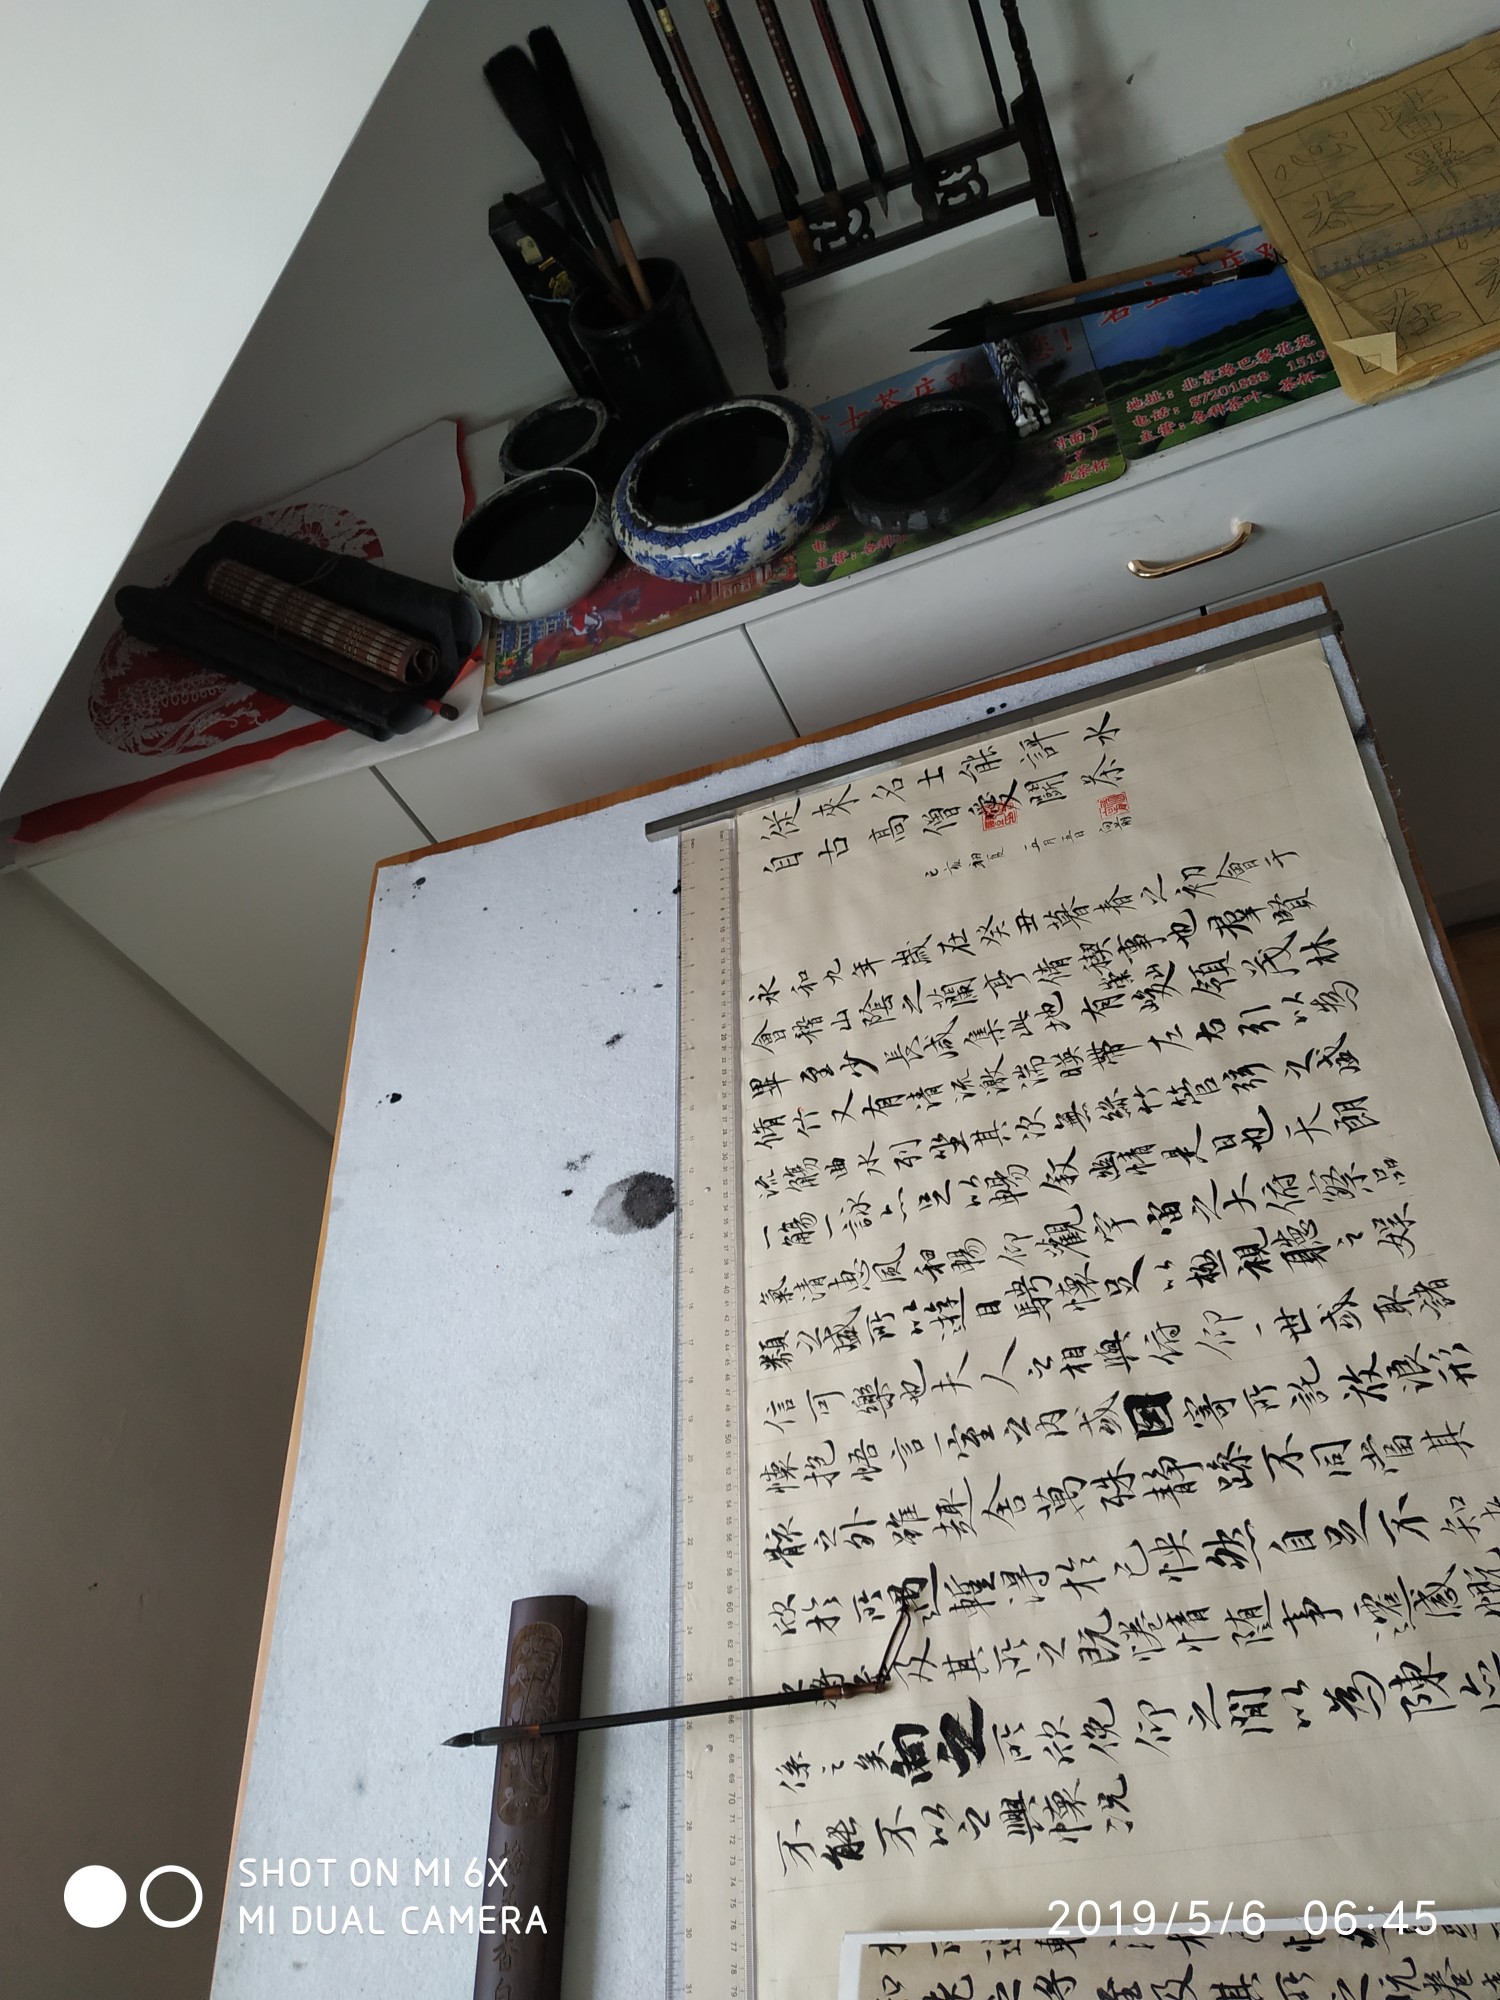 從來名士能評水
自古高僧愛鬭茶
己亥初夏 五月五日
永和九年歲在癸丑暮春之初會于
會稽山陰之蘭亭脩稧事也羣賢
畢至少長咸集此地有崇山峻領茂林
脩竹又有清流激湍暎帶左右引以為
流觴曲水列坐其次無絲竹管弦之盛
一觴一詠亦足以暢叙幽情是日也天朗
氣清惠風和暢仰觀宇宙之大俯察品
類之盛所以遊目騁懷足以極視聽之娛
信可樂也夫人之相與俯仰一世或取諸
懷抱悟言一室之內或因寄所託放浪形
骸之外雖趣舍萬殊靜躁不同當其
欣於所遇暫得於己怏然自足不知老
之將至及其所之既惓情隨事遷感慨
係之矣向之所欣俛仰之間以為陳迹
不能不以之興懷況
地址：北京路巴黎花苑
电话：87201888 1519
主营：各种茶叶、茶杯、
SHOT ON MI 6X
MI DUAL CAMERA
2019/5/6 06:45